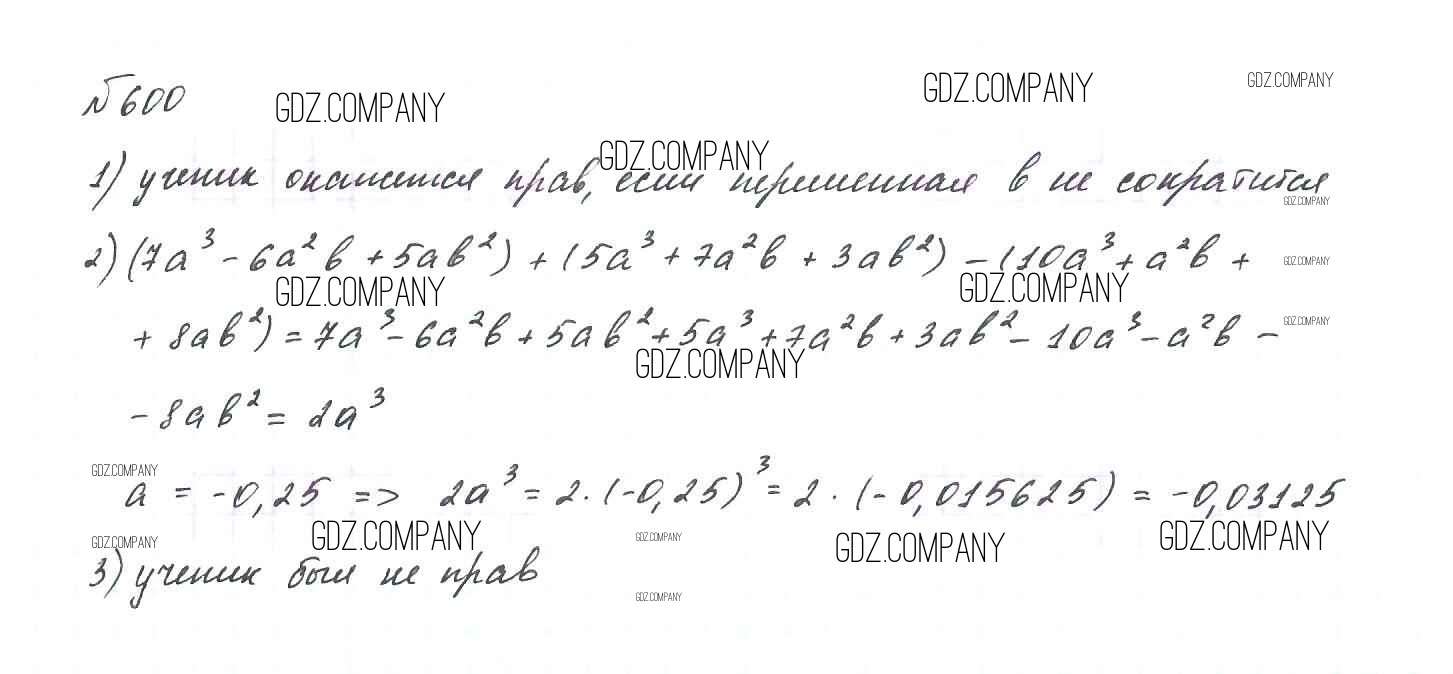 №600
GDZ.COMPANY
GDZ.COMPANY
GDZ.COMPANY
GDZ.COMPANY
1) ученик окажется прав, если переменная b не сократится
GDZ.COMPANY
2) (7a³ - 6a²b + 5ab²) + (5a³ + 7a²b + 3ab²) - (10a³ + a²b +
GDZ.COMPANY
GDZ.COMPANY
GDZ.COMPANY
+ 8ab²) = 7a³ - 6a²b + 5ab² + 5a³ + 7a²b + 3ab² - 10a³ - a²b -
GDZ.COMPANY
GDZ.COMPANY
- 8ab² = 2a³
GDZ.COMPANY
a = -0,25 => 2a³ = 2·(-0,25)³ = 2·(-0,015625) = -0,03125
GDZ.COMPANY
GDZ.COMPANY
GDZ.COMPANY
GDZ.COMPANY
GDZ.COMPANY
3) ученик был не прав
GDZ.COMPANY